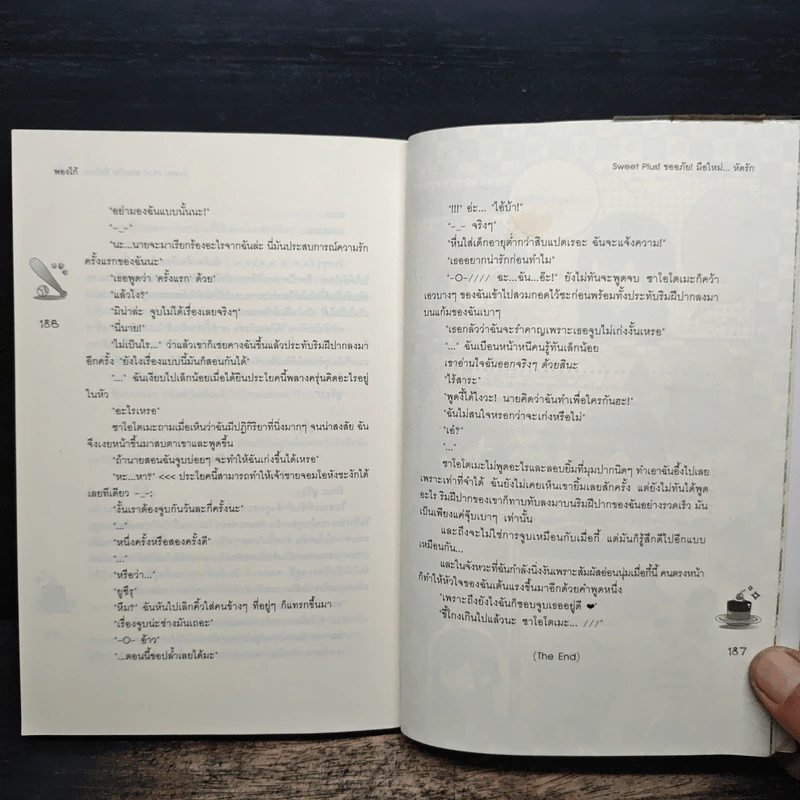 พองโก้
"อย่ามองฉันแบบนั้นนะ!"
"-_-"
"นะ...นายจะมาเรียกร้องอะไรจากฉันล่ะ นี่มันประสบการณ์ความรัก
ครั้งแรกของฉันนะ"
"เธอพูดว่า 'ครั้งแรก' ด้วย"
"แล้วไง?"
"มิน่าล่ะ จูบไม่ได้เรื่องเลยจริงๆ"
"นี่นาย!"
"ไม่เป็นไร..." ว่าแล้วเขาก็เชยคางฉันขึ้นแล้วประทับริมฝีปากลงมา
อีกครั้ง "ยังไงเรื่องแบบนี้มันก็สอนกันได้"
"..." ฉันเงียบไปเล็กน้อยเมื่อได้ยินประโยคนี้พลางครุ่นคิดอะไรอยู่
ในหัว
"อะไรเหรอ"
ซาโอโตเมะถามเมื่อเห็นว่าฉันมีปฏิกิริยาที่นิ่งมากๆ จนน่าสงสัย ฉัน
จึงเงยหน้าขึ้นมาสบตาเขาและพูดขึ้น
"ถ้านายสอนฉันจูบบ่อยๆ จะทำให้ฉันเก่งขึ้นได้เหรอ"
"หะ...หา?" <<< ประโยคนี้สามารถทำให้เจ้าชายจอมโอหังชะงักได้
เลยทีเดียว -_-;
"งั้นเราต้องจูบกันวันละกี่ครั้งนะ"
"..."
"หนึ่งครั้งหรือสองครั้งดี"
"..."
"หรือว่า..."
"ยูซึรุ"
"หืม?" ฉันหันไปเลิกคิ้วใส่คนข้างๆ ที่อยู่ๆ ก็แทรกขึ้นมา
"เรื่องจูบน่ะช่างมันเถอะ"
"-O- อ้าว"
"...ตอนนี้ขอปล้ำเลยได้มะ"
186
Sweet Plus! ขออภัย! มือใหม่... หัดรัก
"!!!" อ่ะ... "ไอ้บ้า!"
"-_- จริงๆ"
"หื่นใส่เด็กอายุต่ำกว่าสิบแปดเรอะ ฉันจะแจ้งความ!"
"เธออยากน่ารักก่อนทำไม"
"-O-//// ฉะ...ฉัน...อ๊ะ!" ยังไม่ทันจะพูดจบ ซาโอโตเมะก็คว้า
เอวบางๆ ของฉันเข้าไปสวมกอดไว้ซะก่อนพร้อมทั้งประทับริมฝีปากลงมา
บนแก้มของฉันเบาๆ
"เธอกลัวว่าฉันจะรำคาญเพราะเธอจูบไม่เก่งงั้นเหรอ"
"..." ฉันเบือนหน้าหนีคนรู้ทันเล็กน้อย
เขาอ่านใจฉันออกจริงๆ ด้วยสินะ
"ไร้สาระ"
"พูดงี้ได้ไงวะ! นายคิดว่าฉันทำเพื่อใครกันฮะ!"
"ฉันไม่สนใจหรอกว่าจะเก่งหรือไม่"
"เอ๋?"
"..."
ซาโอโตเมะไม่พูดอะไรและลอบยิ้มที่มุมปากนิดๆ ทำเอาฉันอึ้งไปเลย
เพราะเท่าที่จำได้ ฉันยังไม่เคยเห็นเขายิ้มเลยสักครั้ง แต่ยังไม่ทันได้พูด
อะไร ริมฝีปากของเขาก็ทาบทับลงมาบนริมฝีปากของฉันอย่างรวดเร็ว มัน
เป็นเพียงแค่จุ๊บเบาๆ เท่านั้น
และถึงจะไม่ใช่การจูบเหมือนกับเมื่อกี้ แต่มันก็รู้สึกดีไปอีกแบบ
เหมือนกัน...
และในจังหวะที่ฉันกำลังนิ่งงันเพราะสัมผัสอ่อนนุ่มเมื่อกี้นี้ คนตรงหน้า
ก็ทำให้หัวใจของฉันเต้นแรงขึ้นมาอีกด้วยคำพูดหนึ่ง
"เพราะถึงยังไงฉันก็ชอบจูบเธออยู่ดี ❤"
"ขี้โกงเกินไปแล้วนะ ซาโอโตเมะ... ///"
(The End)
187